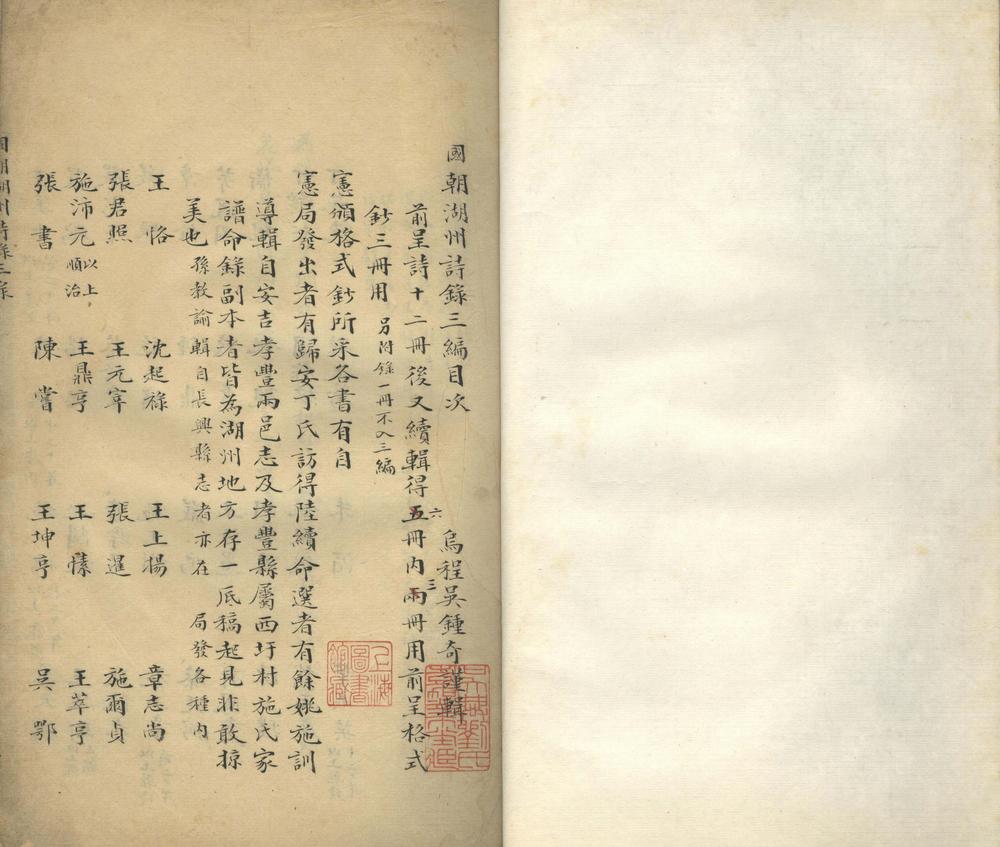 國朝湖州詩錄三編目次
烏程吳鍾奇謹輯
前呈詩十二冊後又續輯得五冊內兩冊用前呈格式
六
三
鈔三冊用另附錄一冊不入三編
憲頒格式鈔所采各書有自
憲局發出者有歸安丁氏訪得陸續命選者有餘姚施訓
導輯自安吉孝豐兩邑志及孝豐縣屬西圩村施氏家
譜命錄副本者皆為湖州地方存一底稿起見非敢掠
美也孫教諭輯自長興縣志者亦在 局發各種內
王恪 沈起祿 王上揚 章志尚
張君照 王元宰 張暹 施爾貞
施沛元以上順治 王鼎亨 王愫 王萃亨
張書 陳嘗 王坤亨 吳鄂
國朝湖州詩錄三編
上海圖書館藏